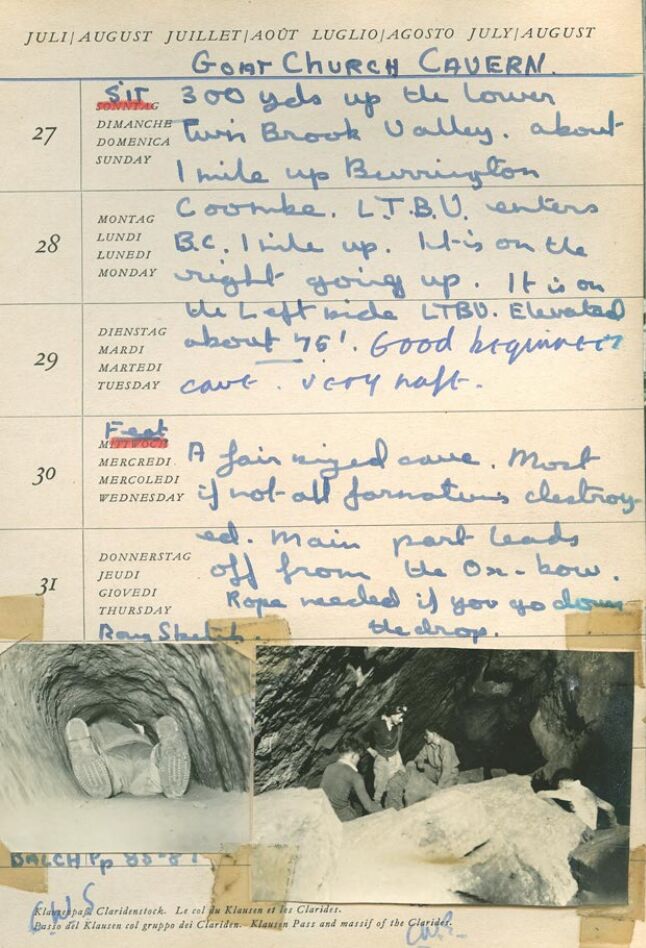 JULI|AUGUST JUILLET|AOÛT LUGLIO|AGOSTO JULY|AUGUST
GOAT CHURCH CAVERN.
27
Sit
SONNTAG
DIMANCHE
DOMENICA
SUNDAY
300 yds up the Lower
Twin Brook Valley. about
1 mile up Burrington
28
MONTAG
LUNDI
LUNEDI
MONDAY
Coombe. L.T.B.V. enters
B.C. 1 mile up. It is on the
right going up. It is on
the Left side LTBV. Elevated
29
DIENSTAG
MARDI
MARTEDI
TUESDAY
about 75'. Good beginners
cave. very
30
Feat
MITTWOCH
MERCREDI
MERCOLEDI
WEDNESDAY
A fair sized cave. Most
if not all formations destroy-
ed. Main part leads
31
DONNERSTAG
JEUDI
GIOVEDI
THURSDAY
off from the Ox-bow.
Rope needed if you go down
the drop.
Sketch.
BALCH Pp
C.W.S
Klausenpass Claridenstock. Le col du Klausen et les Clarides.
Passo del Klausen col gruppo dei Clariden. Klausen Pass and massif of the Clarides.